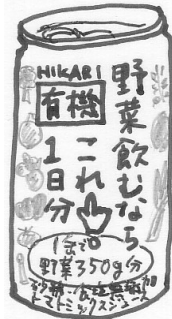 HIKARI
野菜飲むなら
これ
1日分
有機
1缶で
野菜350g分
砂糖・食塩無添加
トマトミックスジュース